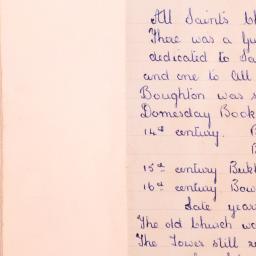 All Saint's Ch
There was a Gu
dedicated to Sa
and one to All
Boughton was s
Domesday Book
14th century. B
B
15th century Bukt
16th century Bow
Late year
The old Church wa
The Tower still re